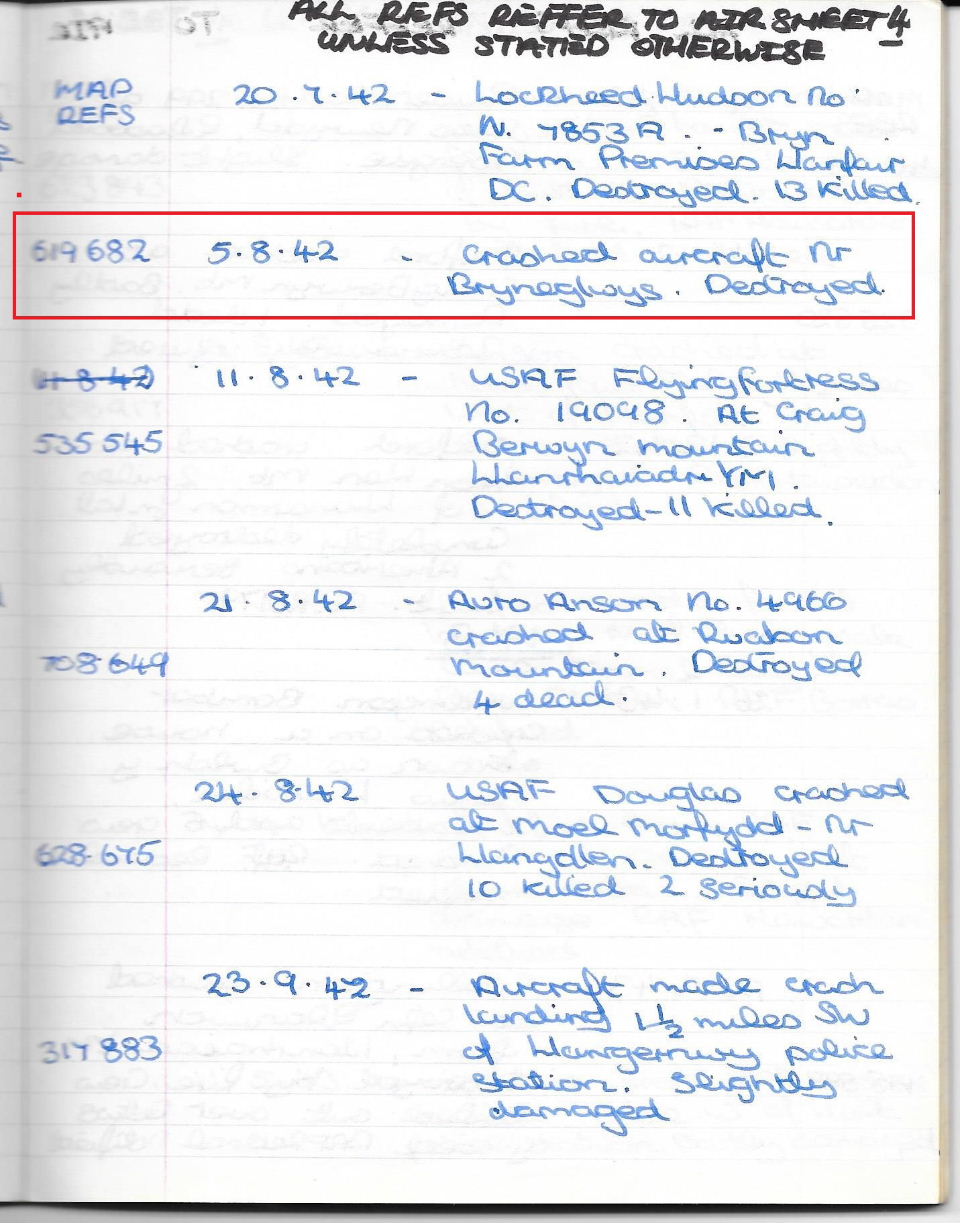 ALL REFS REFFER TO AIR SHEET 4
UNLESS STATED OTHERWISE
MAP REFS
20.7.42 - Lockheed Hudson No
N. 7853 A. - Bryn
Farm Premises Llanfair
DC. Destroyed. 13 Killed.
619682 5.8.42 - Crashed aircraft Nr
Bryneglwys. Destroyed.
11-8-42 11.8.42 - USAF Flyingfortress
No. 19098. At Craig
535545 Berwyn mountain
Llanrhaiadr YM.
Destroyed-11 Killed.
21.8.42 - Avro Anson No. 4966
crashed at Ruabon
708-649 mountain. Destroyed
4 dead.
24.8.42 USAF Douglas crashed
at Moel Morfydd - Nr
628-675 Llangollen. Destroyed
10 Killed 2 Seriously
23.9.42 - Aircraft made crash
landing 1½ miles SW
317883 of Llangernwy police
Station. Slightly
damaged